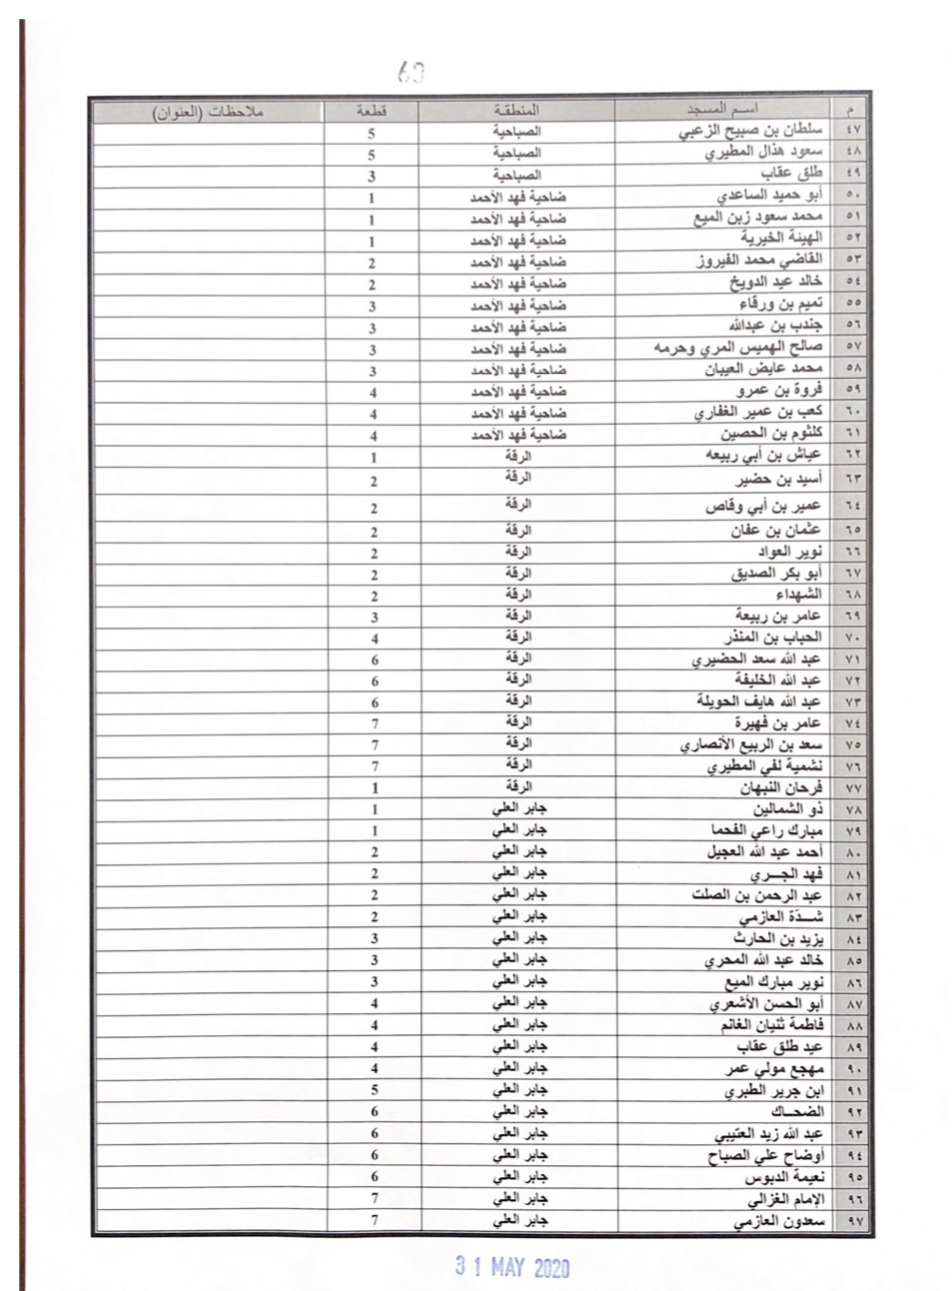 60
م اسم المسجد المنطقة قطعة ملاحظات (العنوان)
٤٧ سلطان بن صبيح الزعبي الصباحية 5
٤٨ سعود هذال المطيري الصباحية 5
٤٩ طلق عقاب الصباحية 3
٥٠ أبو حميد الساعدي ضاحية فهد الأحمد 1
٥١ محمد سعود زبن الميع ضاحية فهد الأحمد 1
٥٢ الهيئة الخيرية ضاحية فهد الأحمد 1
٥٣ القاضي محمد الفيروز ضاحية فهد الأحمد 2
٥٤ خالد عيد الدويخ ضاحية فهد الأحمد 2
٥٥ تميم بن ورقاء ضاحية فهد الأحمد 3
٥٦ جندب بن عبدالله ضاحية فهد الأحمد 3
٥٧ صالح الهميس المري وحرمه ضاحية فهد الأحمد 3
٥٨ محمد عايض العيبان ضاحية فهد الأحمد 3
٥٩ فروة بن عمرو ضاحية فهد الأحمد 4
٦٠ كعب بن عمير الغفاري ضاحية فهد الأحمد 4
٦١ كلثوم بن الحصين ضاحية فهد الأحمد 4
٦٢ عياش بن أبي ربيعه الرقة 1
٦٣ أسيد بن حضير الرقة 2
٦٤ عمير بن أبي وقاص الرقة 2
٦٥ عثمان بن عفان الرقة 2
٦٦ نوير العواد الرقة 2
٦٧ أبو بكر الصديق الرقة 2
٦٨ الشهداء الرقة 2
٦٩ عامر بن ربيعة الرقة 3
٧٠ الحباب بن المنذر الرقة 4
٧١ عبد الله سعد الحضيري الرقة 6
٧٢ عبد الله الخليفة الرقة 6
٧٣ عبد الله هايف الحويلة الرقة 6
٧٤ عامر بن فهيرة الرقة 7
٧٥ سعد بن الربيع الأنصاري الرقة 7
٧٦ نشمية لفي المطيري الرقة 7
٧٧ فرحان النبهان الرقة 1
٧٨ ذو الشمالين جابر العلي 1
٧٩ مبارك راعي الفحما جابر العلي 1
٨٠ أحمد عبد الله العجيل جابر العلي 2
٨١ فهد الجــري جابر العلي 2
٨٢ عبد الرحمن بن الصلت جابر العلي 2
٨٣ شــدّة العازمي جابر العلي 2
٨٤ يزيد بن الحارث جابر العلي 3
٨٥ خالد عبد الله المحري جابر العلي 3
٨٦ نوير مبارك الميع جابر العلي 3
٨٧ أبو الحسن الأشعري جابر العلي 4
٨٨ فاطمة ثنيان الغانم جابر العلي 4
٨٩ عيد طلق عقاب جابر العلي 4
٩٠ مهجع مولي عمر جابر العلي 4
٩١ ابن جرير الطبري جابر العلي 5
٩٢ الضحــاك جابر العلي 6
٩٣ عبد الله زيد العتيبي جابر العلي 6
٩٤ أوضاح علي الصباح جابر العلي 6
٩٥ نعيمة الدبوس جابر العلي 6
٩٦ الإمام الغزالي جابر العلي 7
٩٧ سعدون العازمي جابر العلي 7
31 MAY 2020